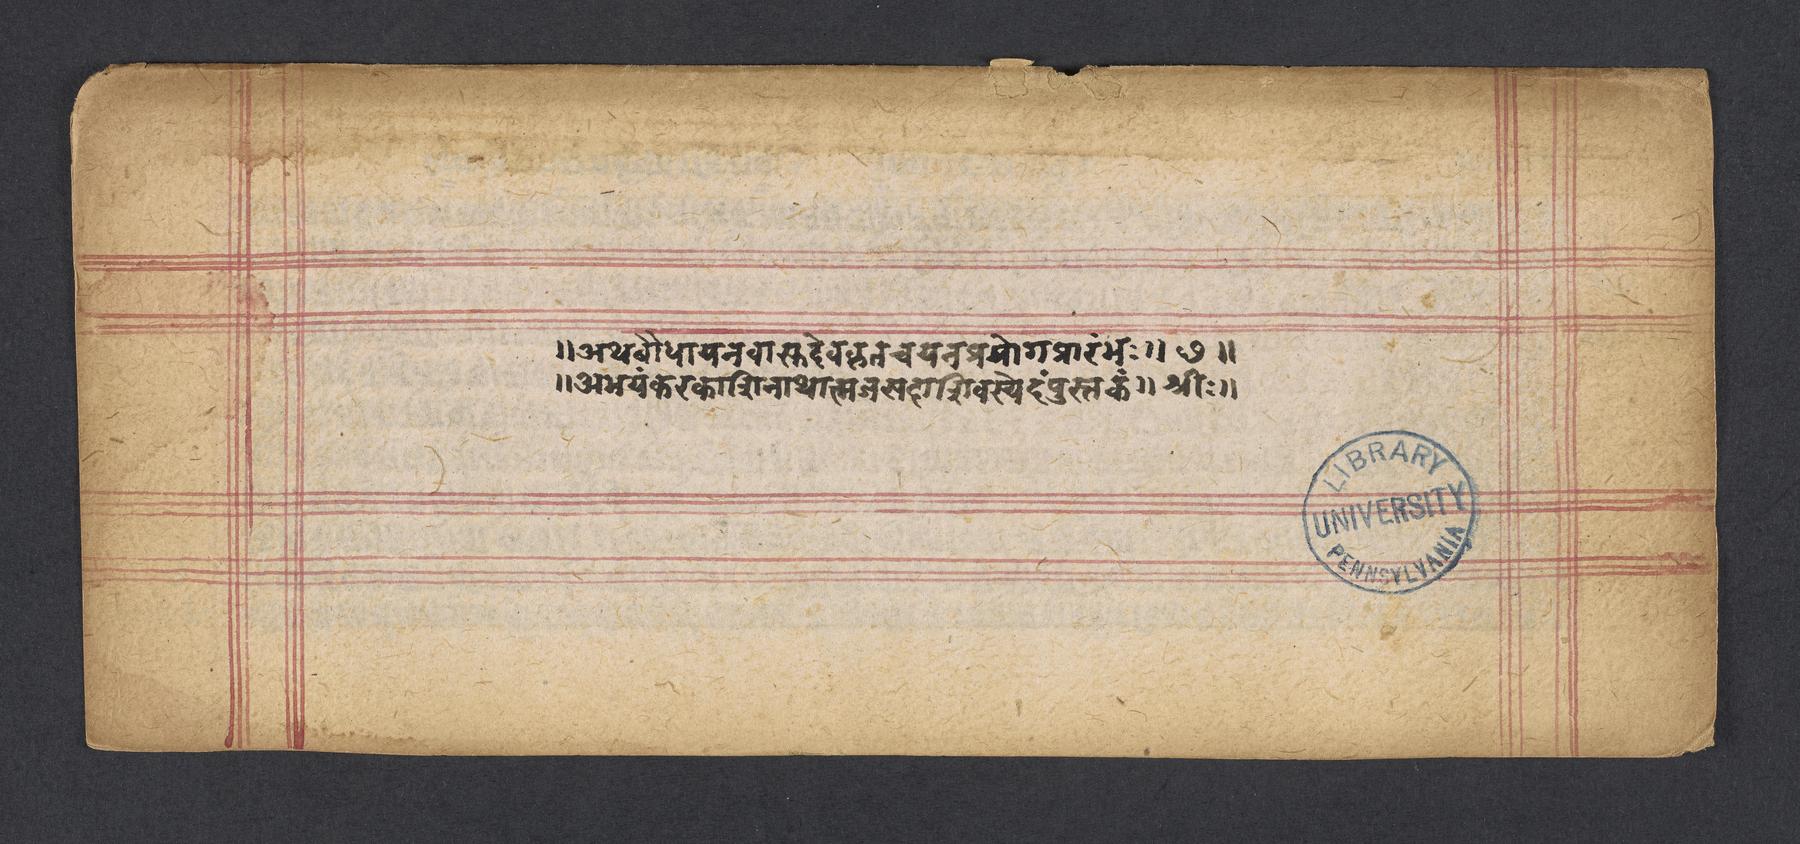 ॥अथबौधायनवासुदेवकृतचयनप्रयोगप्रारंभः॥ ७ ॥
॥अभयंकरकाशिनाथात्मजसदाशिवस्येदंपुस्तकं॥ श्रीः॥
LIBRARY
UNIVERSITY
PENNSYLVANIA